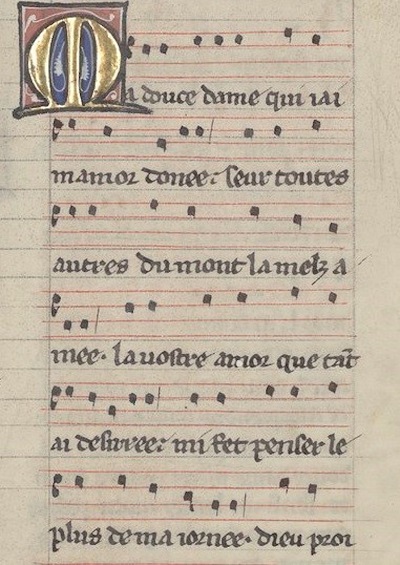 Ma douce dame qui iai
mamor donee. seur toutes
autres du mont lamelz a
mee. lauostre amor que tāt
ai desirree. mi fet penser le
plus de ma iornee. dieu proi